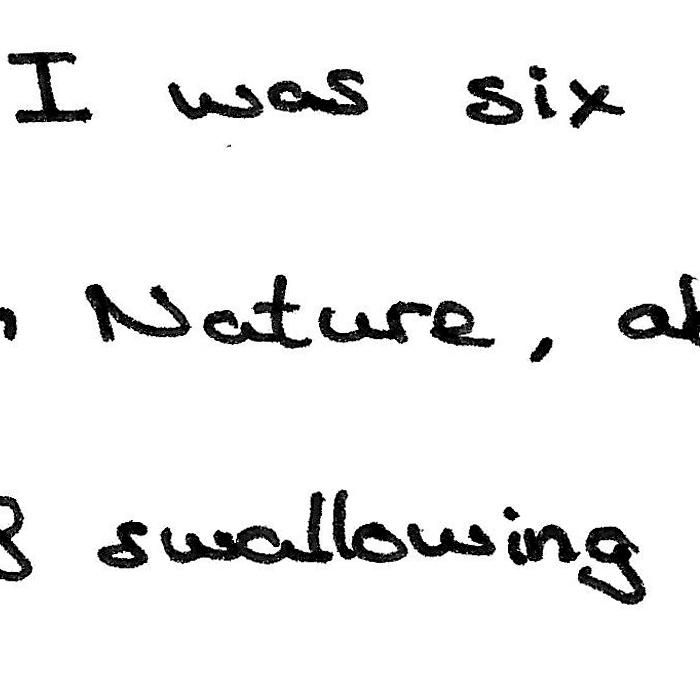 I was six
Nature,
swallowing